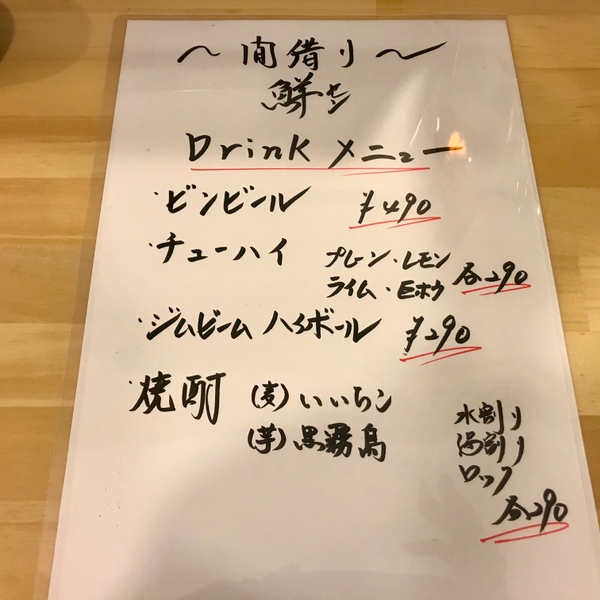 〜間借り〜
鮮セン
Drink メニュー
・ビンビール ¥490
・チューハイ プレーン・レモン
ライム・巨ホウ 各290
・ジムビーム ハイボール ¥290
・焼酎 (麦)いいちこ
(芋)黒霧島
水割り
湯割り
ロック
各290